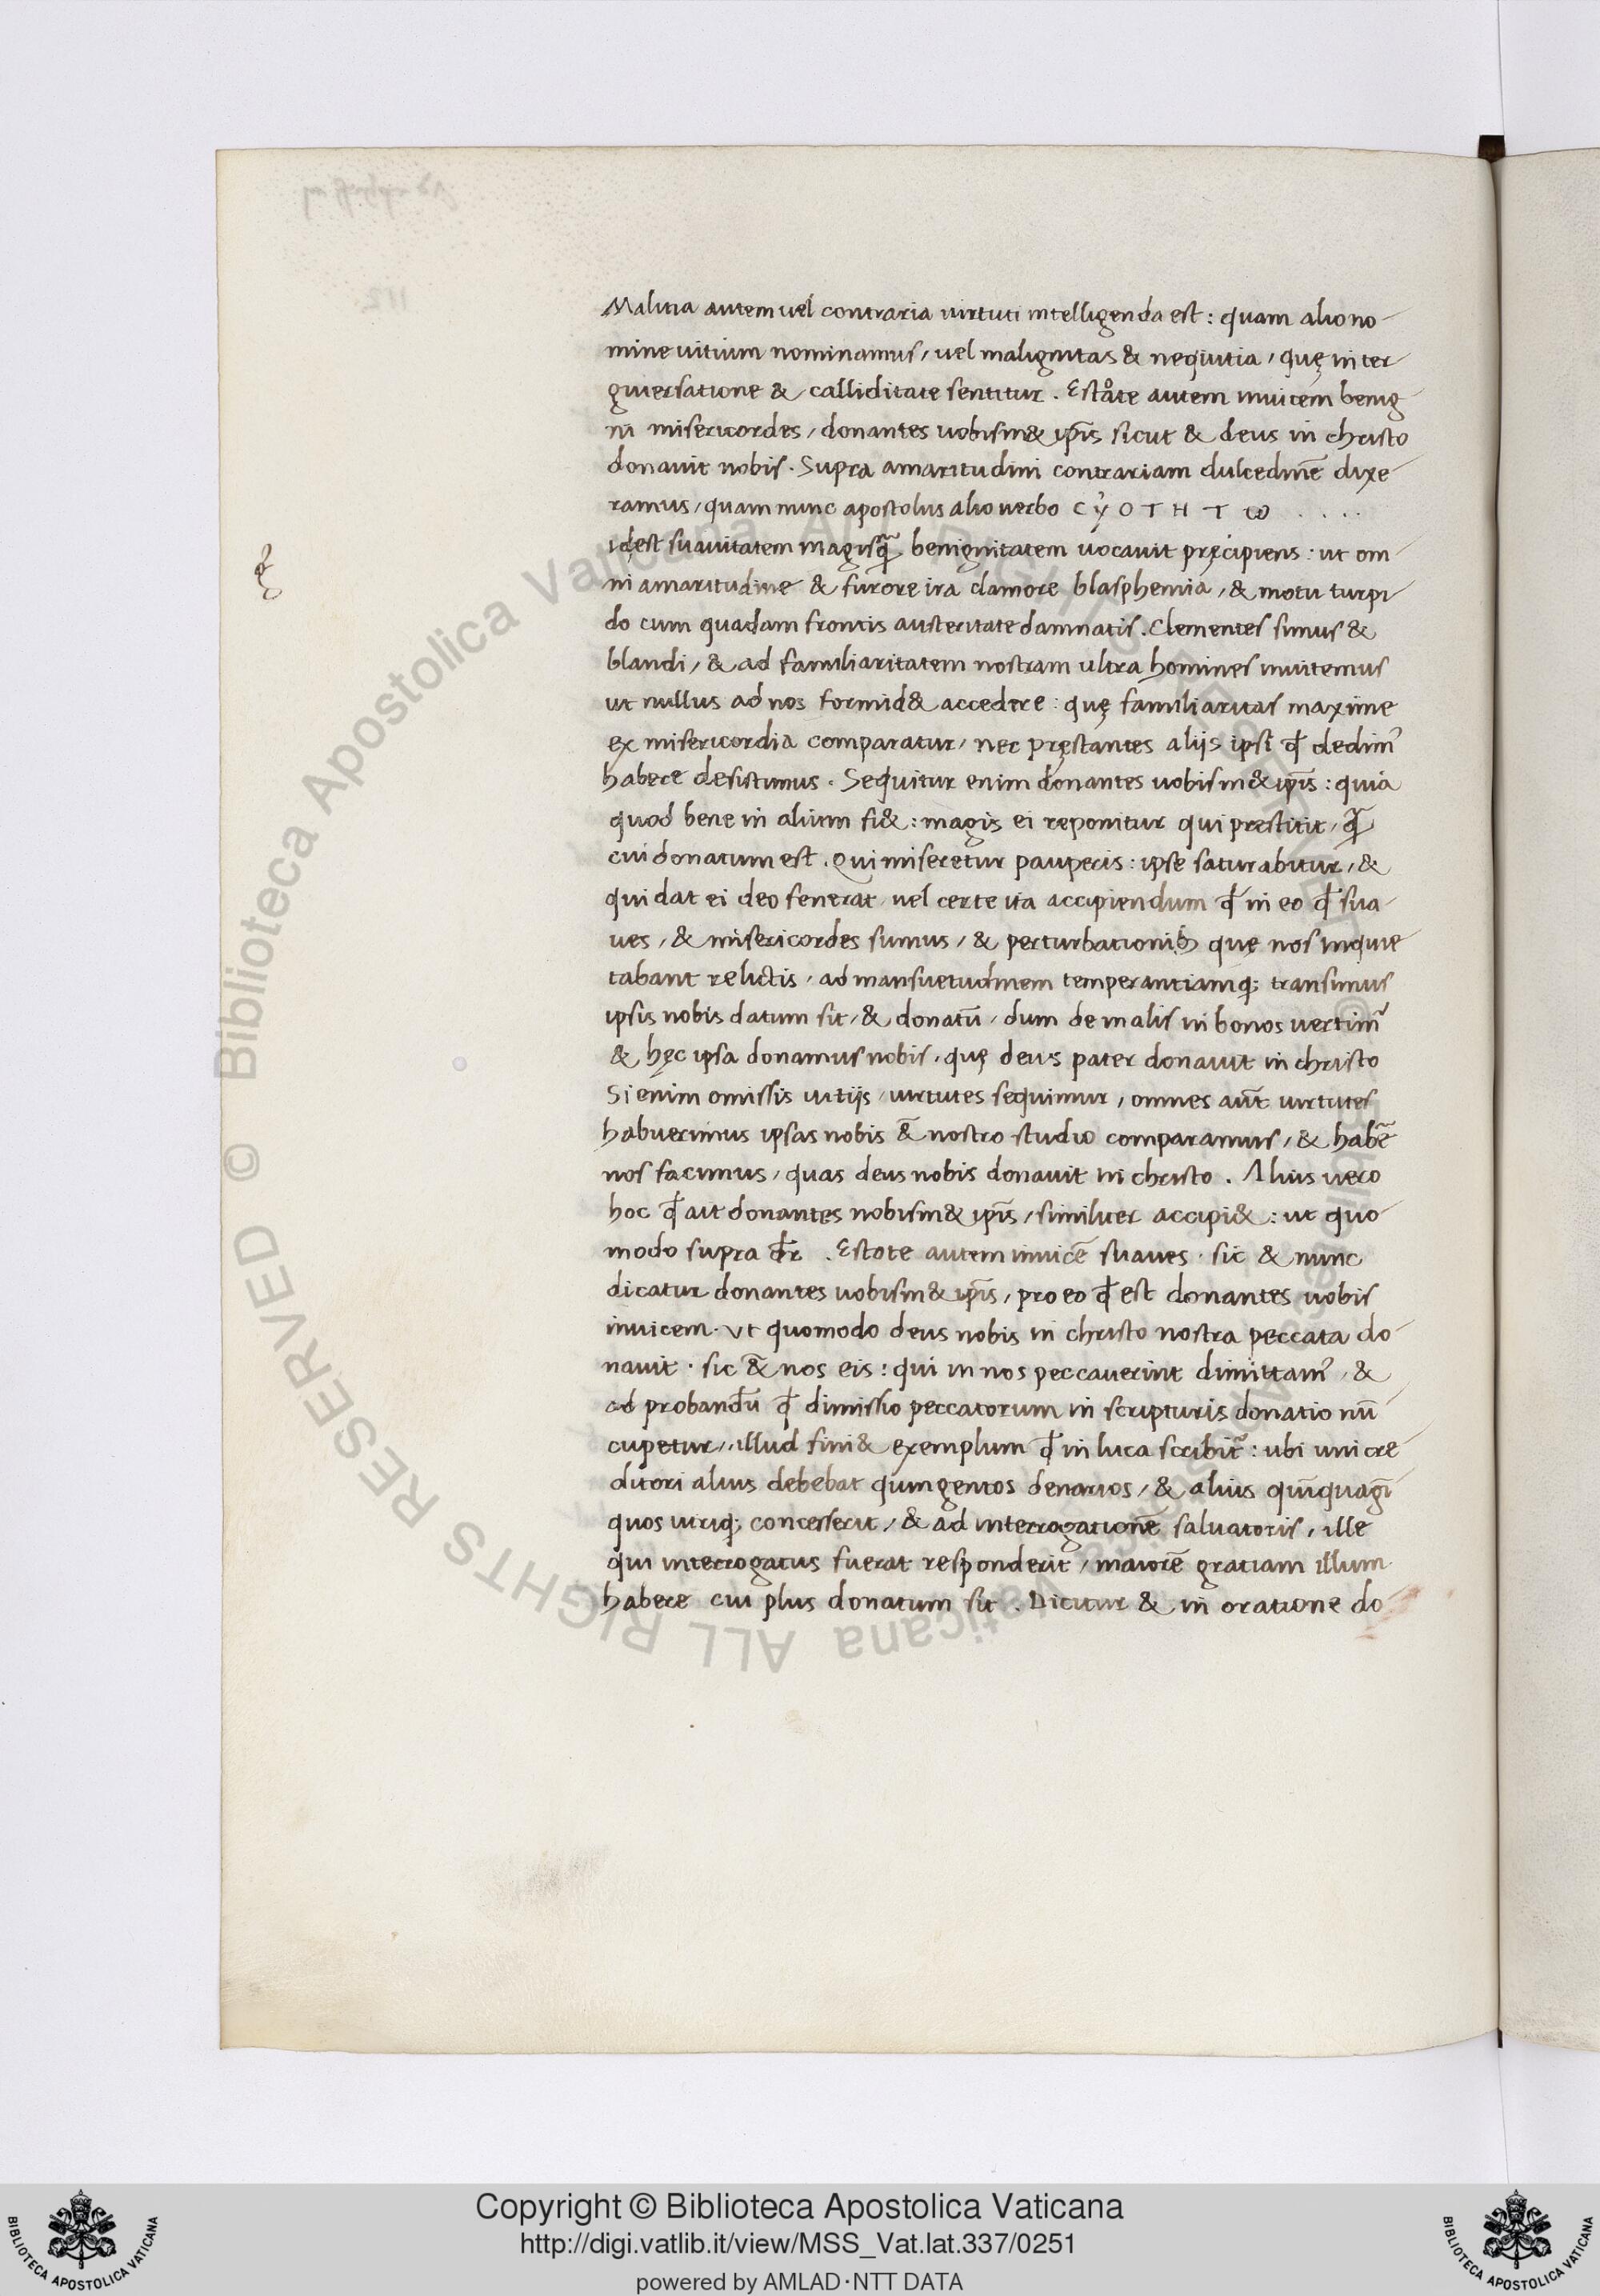 Malitia autem uel contraria uirtuti intelligenda est: quam alio no
mine uitium nominamus, uel malignitas & neqiutia, quę in ter
giuersatione & calliditate sentitur. Eståte autem inuicem benig
ni misericordes, donantes uobism& ip̄is sicut & deus in christo
donauit nobis. Supra amaritudini contrariam dulcedinē dixe
ramus, quam nunc apostolus alio uerbo CΥOTHTω ....
idest suauitatem magisq̄ benignitatem uocauit pręcipiens: ut om
ni amaritudine & furore ira clamore blasphemia, & motu turpi
do cum quadam frontis austeritate damnatis. Clementes simus &
blandi, & ad familiaritatem nostram ultra homines inuitemus
ut nullus ad nos formid& accedere: quę familiaritas maxime
ex misericordia comparatur, nec pręstantes alijs ipsi qđ dedim᾽
habere desistimus. Sequitur enim donantes uobism& ip̄is: quia
quod bene in alium fi&: magis ei reponitur qui prestitit, q̄
cui donatum est. Qui miseretur pauperis: ipse saturabitur, &
qui dat ei deo fenerat uel certe ita accipiendum qđ in eo qđ sua
ues, & misericordes sumus, & perturbationib; quę nos inquie
tabant relictis, ad mansuetudinem temperantiamq; transimus
ipsis nobis datum sit, & donatū, dum de malis in bonos uertim᾽
& hęc ipsa donamus nobis, quę deus pater donauit in christo
Si enim omissis uitijs, uirtutes sequimur, omnes aūt uirtutes
habuerimus ipsas nobis &̄ nostro studio comparamus, & habē
nos facimus, quas deus nobis donauit in christo. Alius uero
hoc qđ ait donantes nobism& ip̄is, similiter accipi&: ut quo
modo supra dr̄. Estote autem inuicē suaues. sic & nunc
dicatur donantes uobism& ip̄is, pro eo qđ est donantes uobis
inuicem. ut quomodo deus nobis in christo nostra peccata do
nauit. sic &̄ nos eis: qui in nos peccauerint dimittam᾽, &
ad probandū qđ dimissio peccatorum in scripturis donatio nū
cupetur, illud sini& exemplum qđ in luca scribit᾽: ubi uni cre
ditori alius debebat quingentos denarios, & alius quīquagī
quos utriq; concesserit, & ad interrogationē saluatoris, ille
qui interrogatus fuerat responderit, maiorē gratiam illum
habere cui plus donatum sit. Dicitur & in oratione do
Copyright © Biblioteca Apostolica Vaticana
http://digi.vatlib.it/view/MSS_Vat.lat.337/0251
powered by AMLAD·NTT DATA
BIBLIOTECA APOSTOLICA VATICANA
BIBLIOTECA APOSTOLICA VATICANA
© Biblioteca Apostolica Vaticana ALL RIGHTS RESERVED